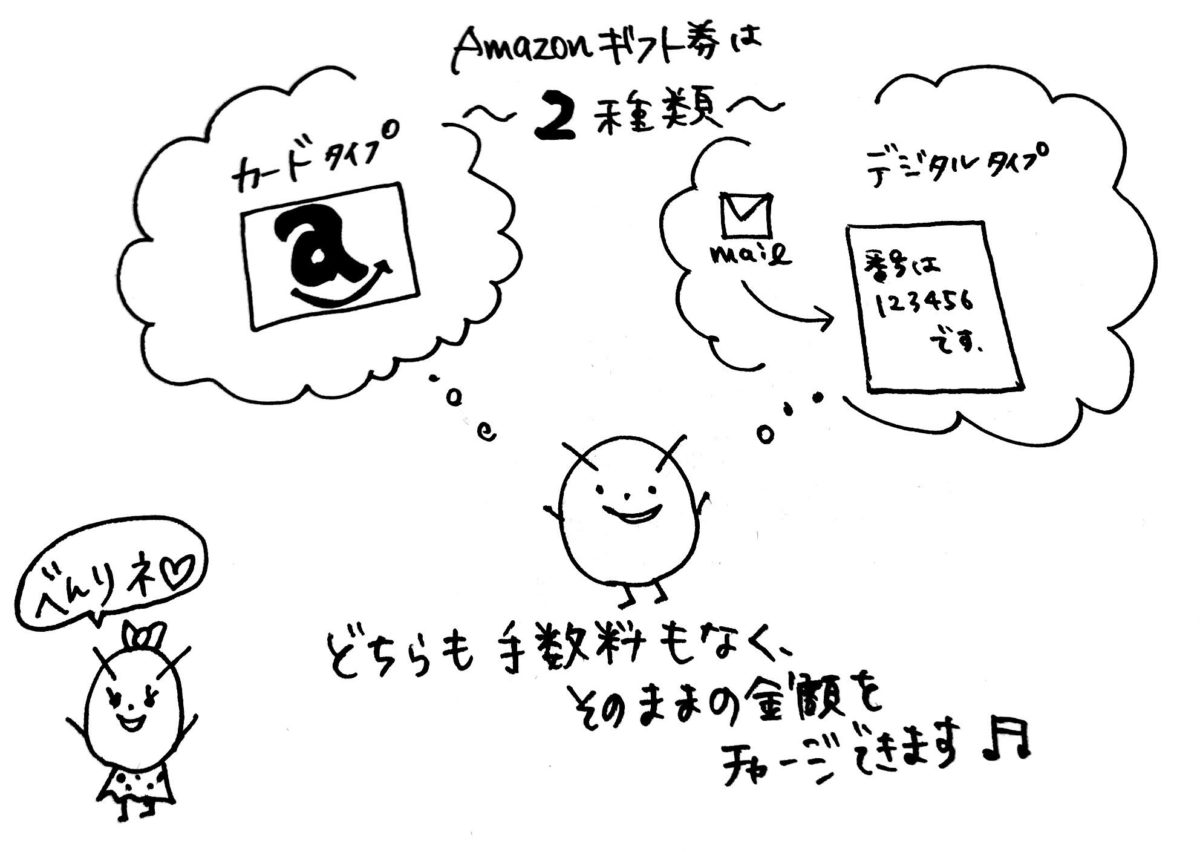 Amazonギフト券は
～2種類～
カードタイプ
a
デジタルタイプ
mail
番号は
123456
です.
べんりネ♡
どちらも手数料もなく、
そのままの金額を
チャージできます♫